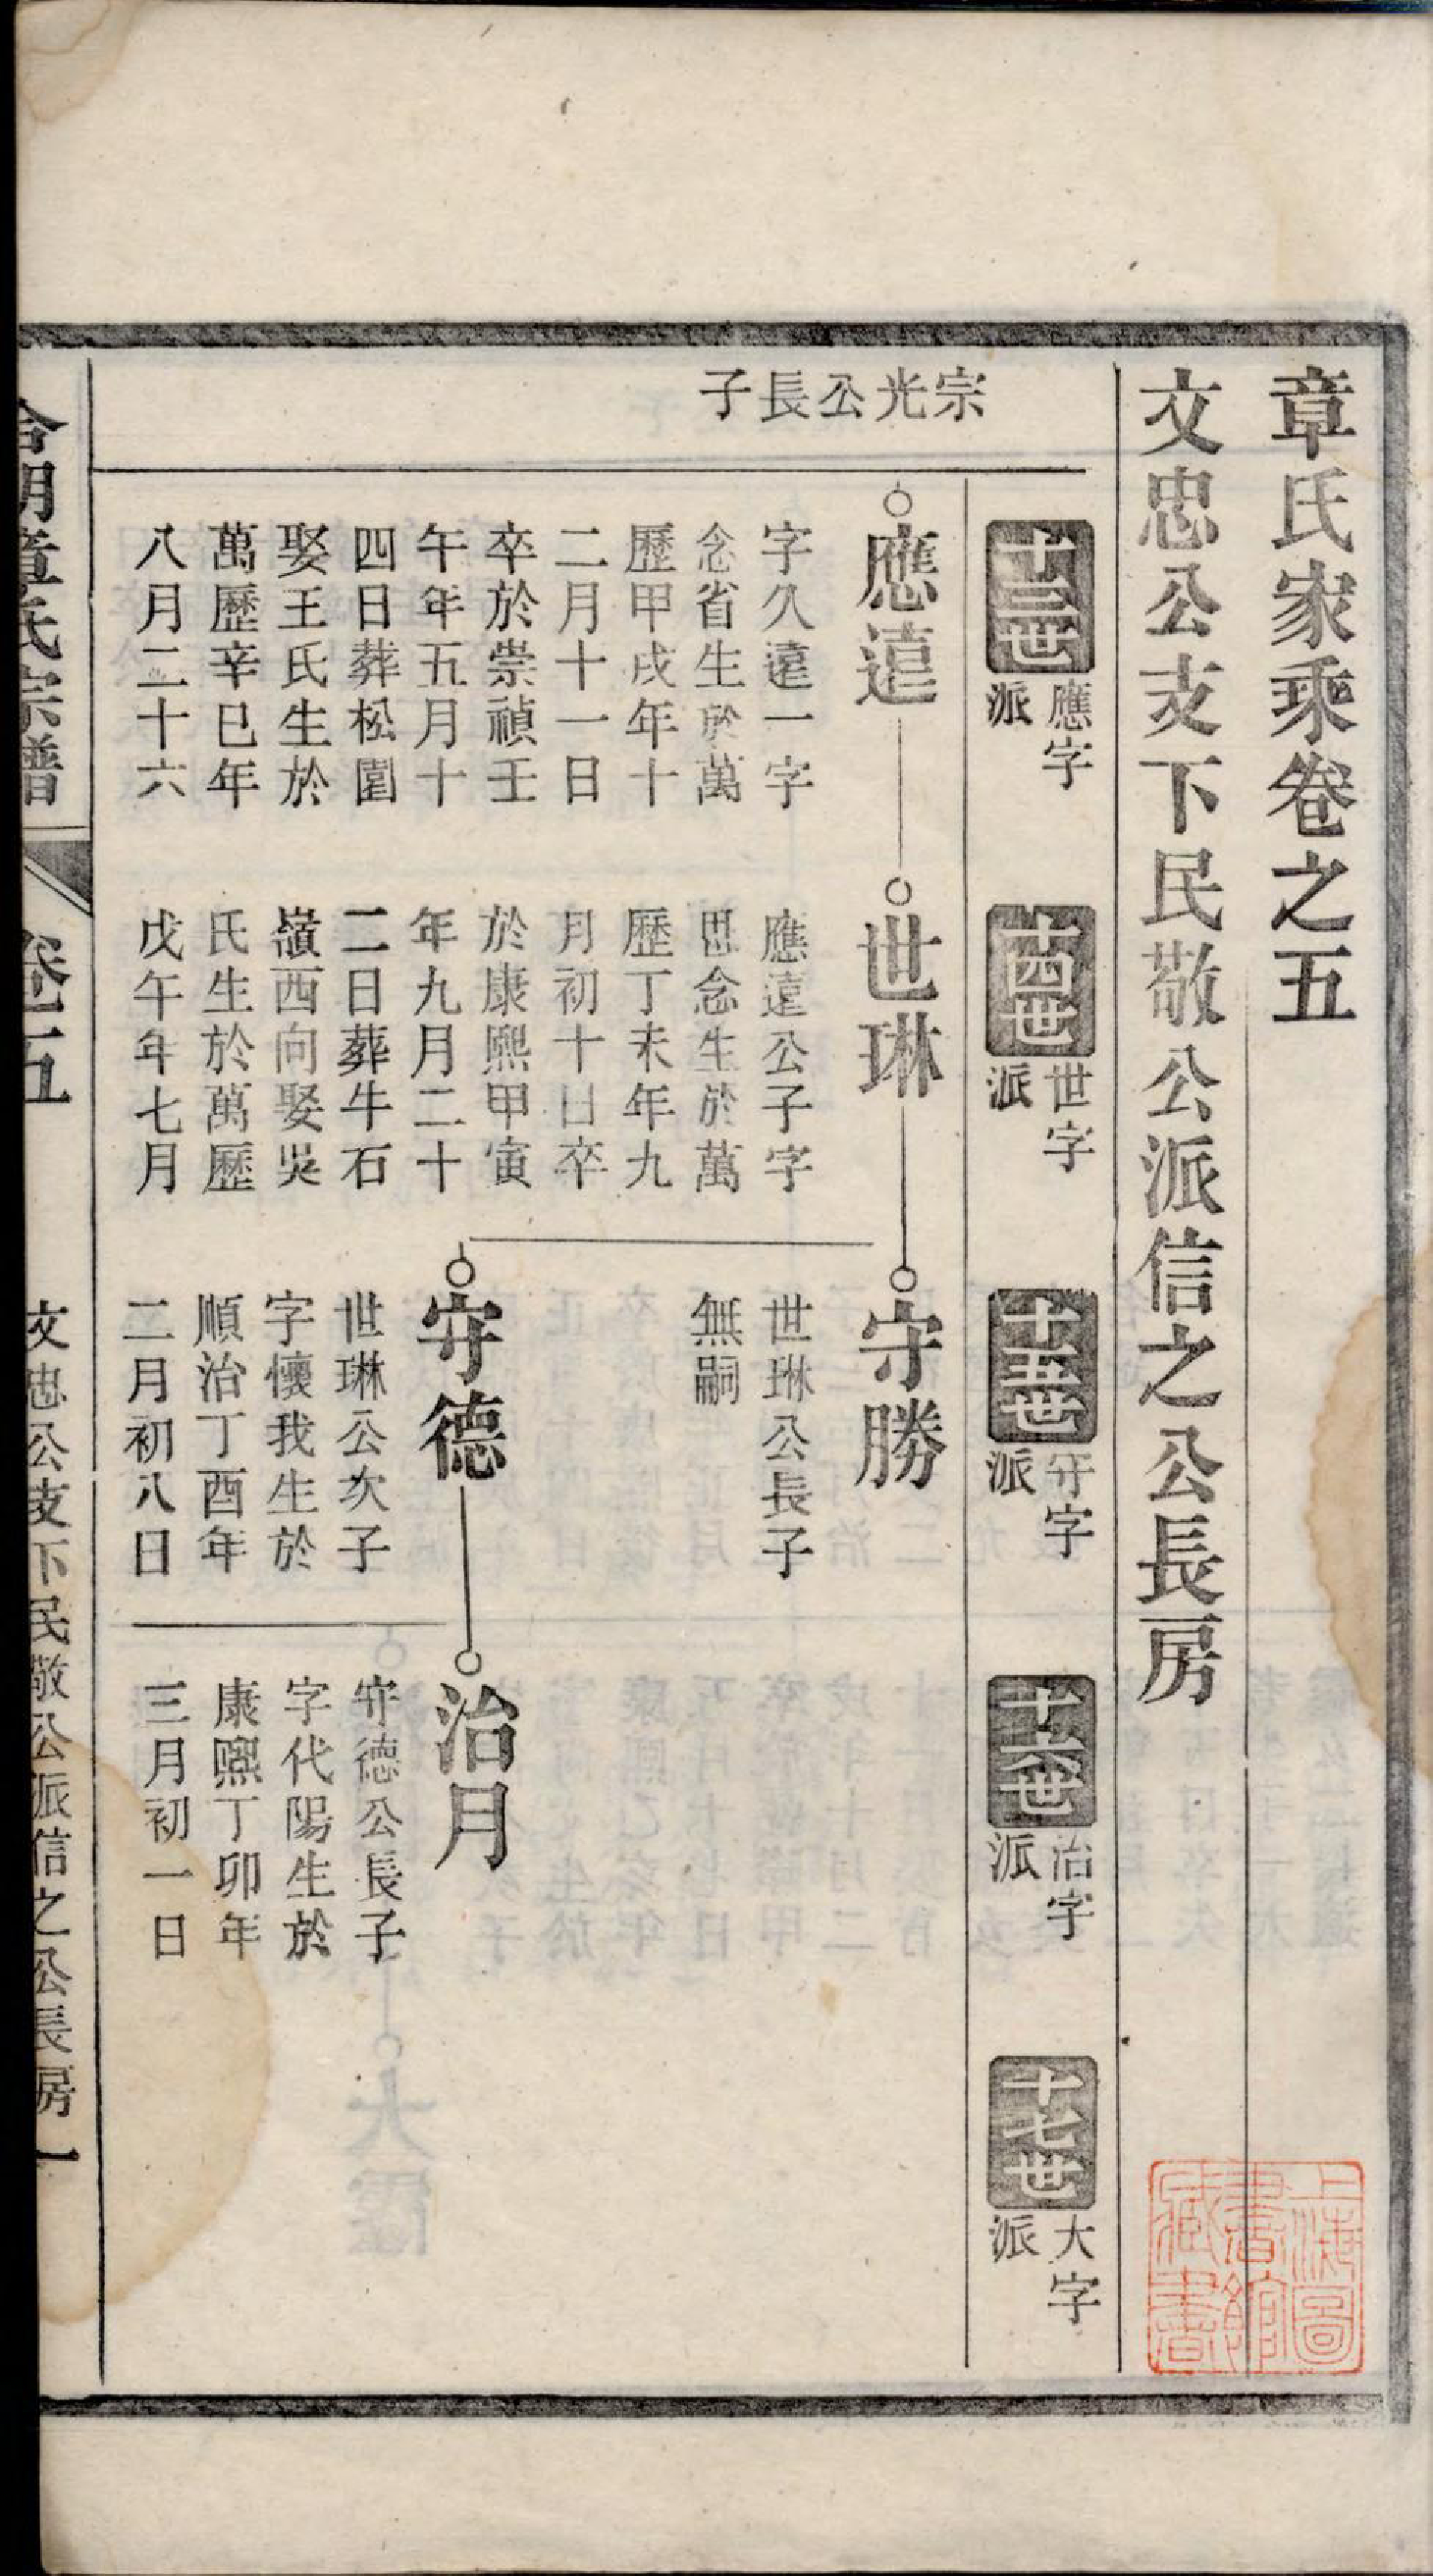 章氏家乘卷之五
文忠公支下民敬公派信之公長房
十三世
應字
派
十四世
世字
派
十五世
守字
派
十六世
治字
派
十七世
大字
派
宗光公長子
應遠
字久遠一字
念省生於萬
歷甲戌年十
二月十一日
卒於崇禎壬
午年五月十
四日葬松園
娶王氏生於
萬歷辛巳年
八月二十六
世琳
應遠公子字
思念生於萬
歷丁未年九
月初十日卒
於康熙甲寅
年九月二十
二日葬牛石
嶺西向娶吳
氏生於萬歷
戊午年七月
守勝
世琳公長子
無嗣
守德
世琳公次子
字懷我生於
順治丁酉年
二月初八日
治月
守德公長子
字代陽生於
康熙丁卯年
三月初一日
合明章氏宗譜
卷五
文忠公支下民敬公派信之公長房
一
上海圖
書館
藏書